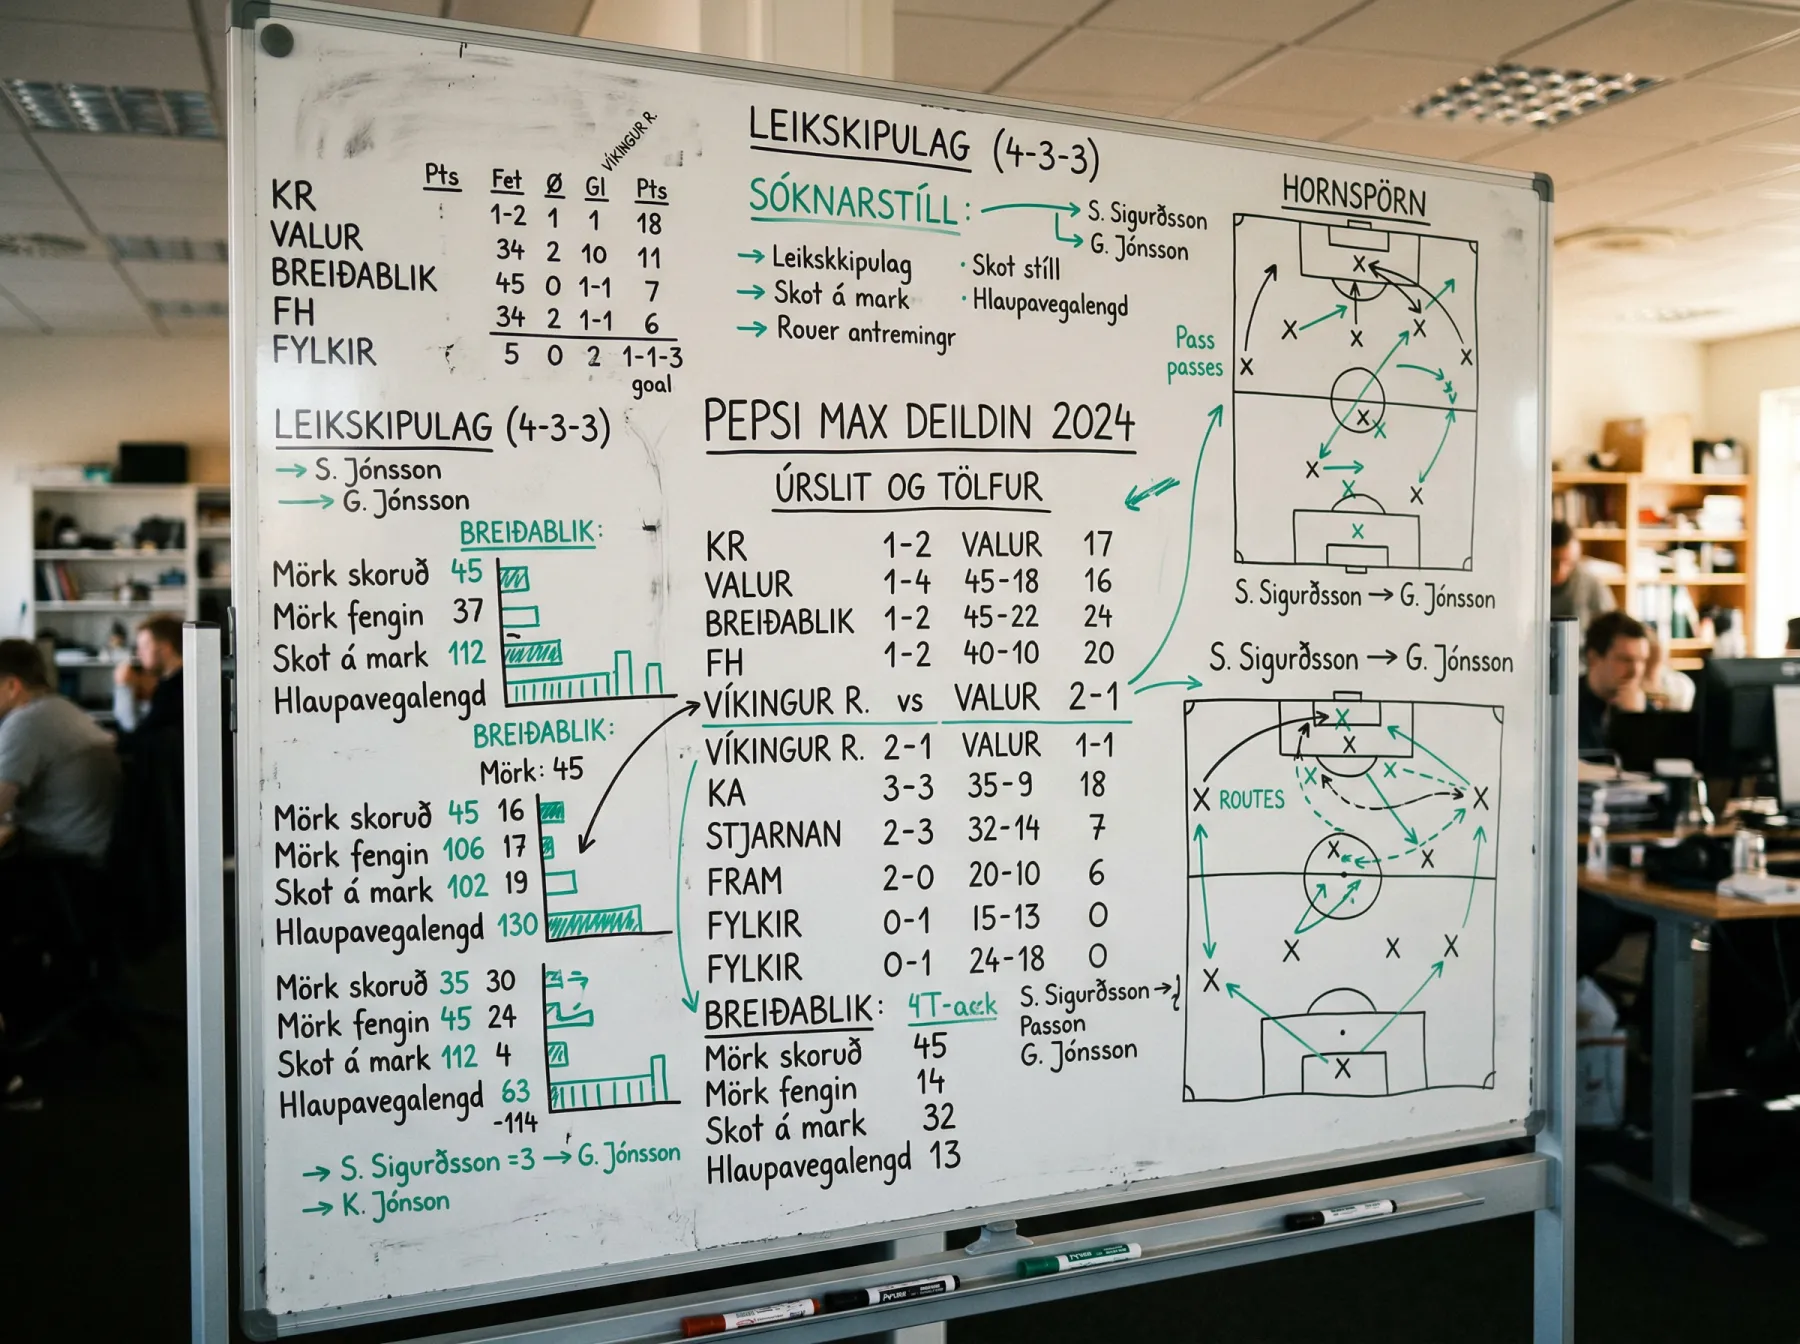 VÍKINGUR R.
Pts Fet Ø Gl Pts
KR 1-2 1 1 18
VALUR 34 2 10 11
BREIÐABLIK 45 0 1-1 7
FH 34 2 1-1 6
FYLKIR 5 0 2 1-1-3
goal
LEIKSKIPULAG (4-3-3)
→ S. Jónsson
→ G. Jónsson
BREIÐABLIK:
Mörk skoruð 45
Mörk fengin 37
Skot á mark 112
Hlaupavegalengd
BREIÐABLIK:
Mörk: 45
Mörk skoruð 45 16
Mörk fengin 106 17
Skot á mark 102 19
Hlaupavegalengd 130
Mörk skoruð 35 30
Mörk fengin 45 24
Skot á mark 112 4
Hlaupavegalengd 63
-114
→ S. Sigurðsson =3 → G. Jónsson
→ K. Jónson
LEIKSKIPULAG (4-3-3)
SÓKNARSTÍLL: → S. Sigurðsson
→ G. Jónsson
→ Leikskkipulag • Skot stíll
→ Skot á mark • Hlaupavegalengd
→ Rouer antremingr
PEPSI MAX DEILDIN 2024
ÚRSLIT OG TÖLFUR
KR 1-2 VALUR 17
VALUR 1-4 45-18 16
BREIÐABLIK 1-2 45-22 24
FH 1-2 40-10 20
VÍKINGUR R. vs VALUR 2-1
VÍKINGUR R. 2-1 VALUR 1-1
KA 3-3 35-9 18
STJARNAN 2-3 32-14 7
FRAM 2-0 20-10 6
FYLKIR 0-1 15-13 0
FYLKIR 0-1 24-18 0
BREIÐABLIK: 4T-ack
Mörk skoruð 45
Mörk fengin 14
Skot á mark 32
Hlaupavegalengd 13
S. Sigurðsson →
Passon
G. Jónsson
HORNSPÖRN
Pass
passes
S. Sigurðsson → G. Jónsson
S. Sigurðsson → G. Jónsson
ROUTES